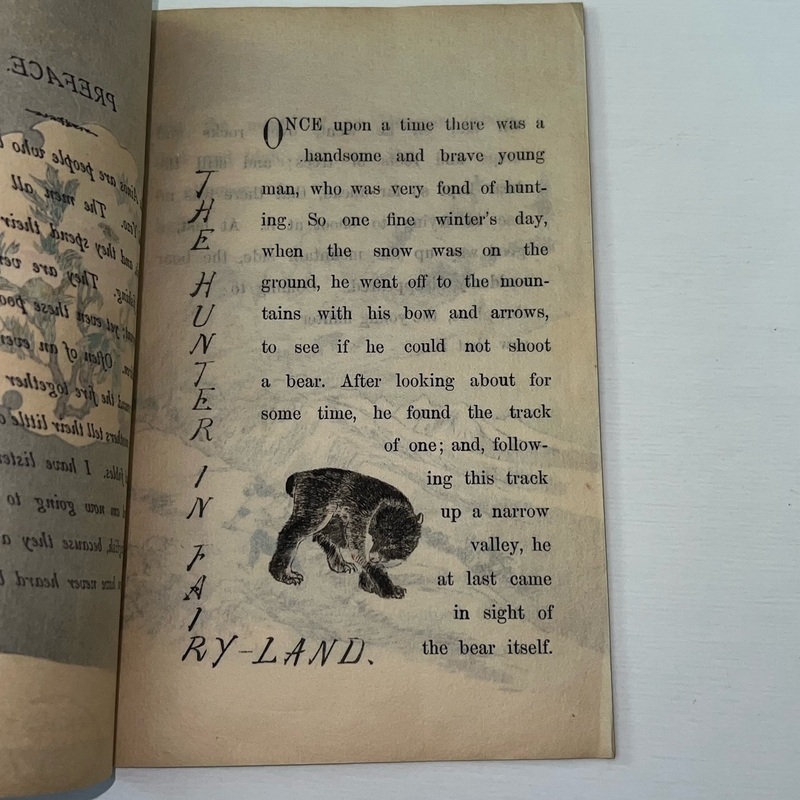 PREFACE.
are people who
The men all
and they spend their
They are ver
yet even these poo
Often of an even
the fire together
tell their little
I have listen
now going to
because they a
have never heard
THE HUNTER IN FAIRY-LAND.
ONCE upon a time there was a
handsome and brave young
man, who was very fond of hunt-
ing. So one fine winter's day,
when the snow was on the
ground, he went off to the moun-
tains with his bow and arrows,
to see if he could not shoot
a bear. After looking about for
some time, he found the track
of one; and, follow-
ing this track
up a narrow
valley, he
at last came
in sight of
the bear itself.